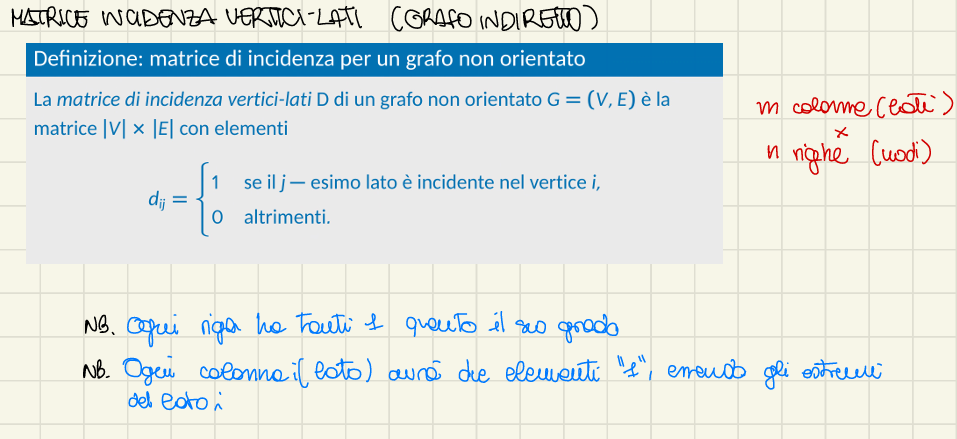 MATRICE INCIDENZA VERTICI-LATI (GRAFO INDIRETTO)
Definizione: matrice di incidenza per un grafo non orientato
La matrice di incidenza vertici-lati D di un grafo non orientato G = (V, E) è la
matrice |V| × |E| con elementi
d_ij = { 1 se il j – esimo lato è incidente nel vertice i,
0 altrimenti.
m colonne (lati)
×
n righe (nodi)
NB. Ogni riga ha tanti 1 quanto il suo grado
NB. Ogni colonna i (lato) avrà due elementi "1", essendo gli estremi
del lato i